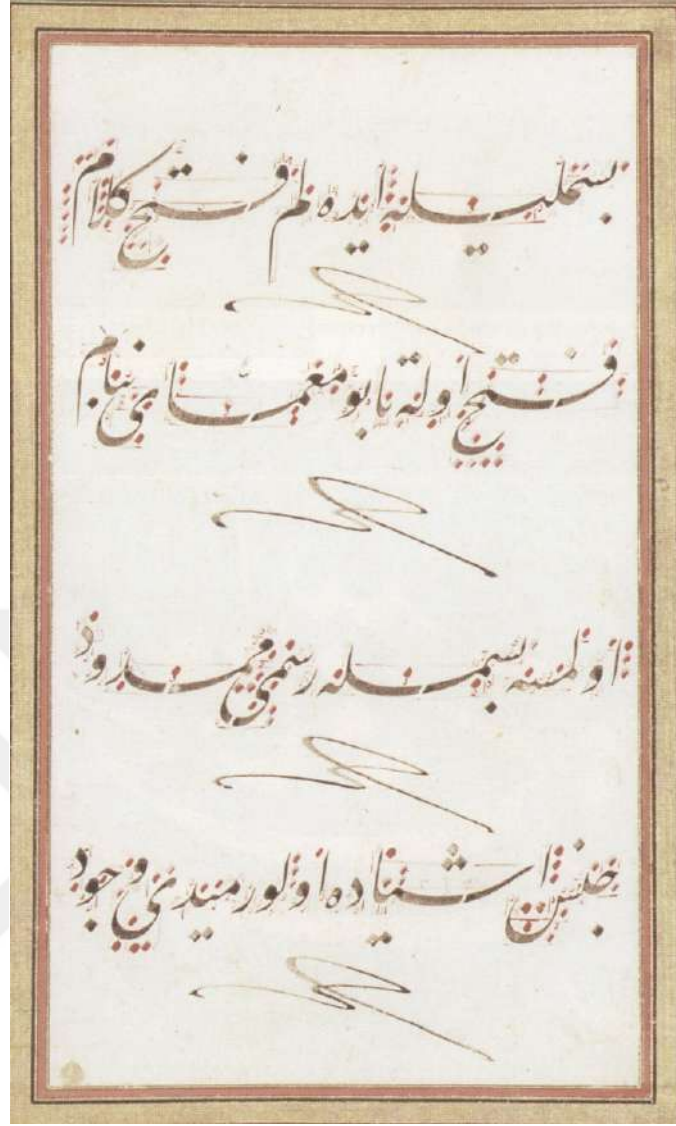 بسمليله ايده لم فتح كلام
فتح اوله تا بو معماى بنام
اولمسه بسمله رسمى ممدود
جنس اشياده اولورميدى وجود